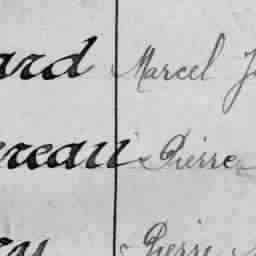 ard Marcel J
reau Pierre
Pierre